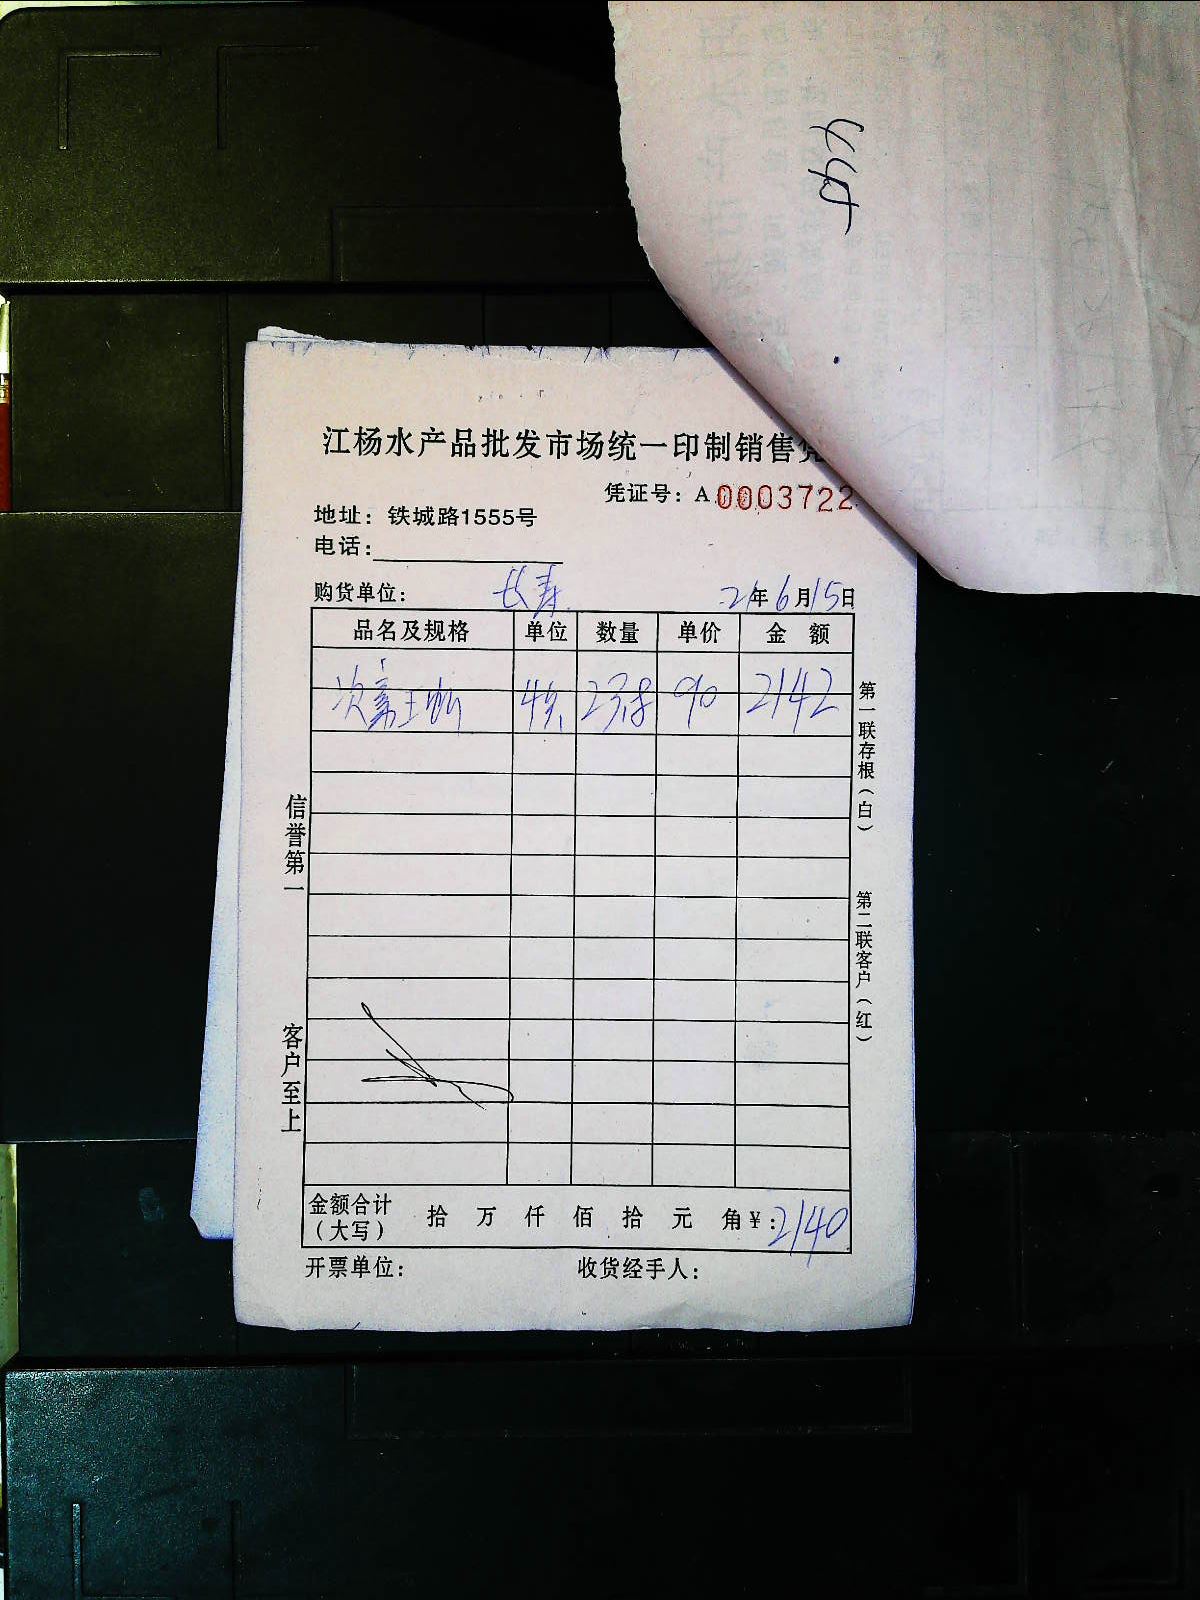 江杨水产品批发市场统一印制销售凭
凭证号：A 0003722
地址：铁城路1555号
电话：
购货单位：长寿 21年6月15日
品名及规格 单位 数量 单价 金额
23.8 90 2142
第一联存根（白）
第二联客户（红）
信誉第一
客户至上
金额合计（大写） 拾 万 仟 佰 拾 元 角 ¥：2140
开票单位： 收货经手人：